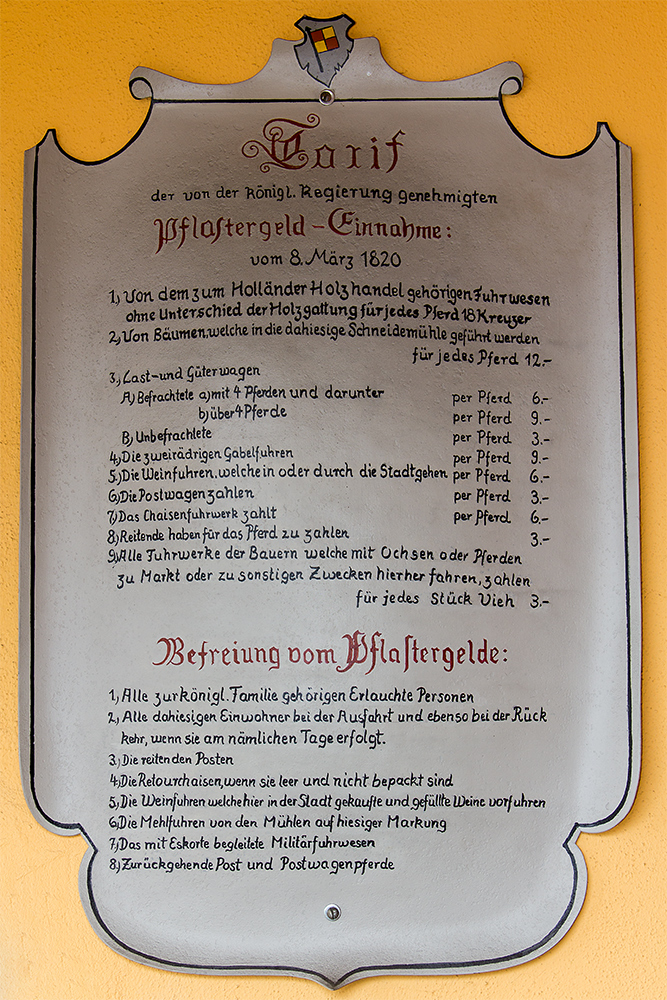 Tarif
der von der königl. Regierung genehmigten
Pflastergeld-Einnahme:
vom 8. März 1820
1.) Von dem zum Holländer Holzhandel gehörigen Fuhrwesen
ohne Unterschied der Holzgattung für jedes Pferd 18 Kreuzer
2.) Von Bäumen, welche in die dahiesige Schneidemühle geführt werden
für jedes Pferd 12.-
3.) Last- und Güterwagen
A.) Befrachtete a) mit 4 Pferden und darunter per Pferd 6.-
b) über 4 Pferde per Pferd 9.-
B.) Unbefrachtete per Pferd 3.-
4.) Die zweirädrigen Gabelfuhren per Pferd 9.-
5.) Die Weinfuhren, welche in oder durch die Stadt gehen per Pferd 6.-
6.) Die Postwagen zahlen per Pferd 3.-
7.) Das Chaisenfuhrwerk zahlt per Pferd 6.-
8.) Reitende haben für das Pferd zu zahlen 3.-
9.) Alle Fuhrwerke der Bauern welche mit Ochsen oder Pferden
zu Markt oder zu sonstigen Zwecken hierher fahren, zahlen
für jedes Stück Vieh 3.-
Befreiung vom Pflastergelde:
1.) Alle zur königl. Familie gehörigen Erlauchte Personen
2.) Alle dahiesigen Einwohner bei der Ausfahrt und ebenso bei der Rück
kehr, wenn sie am nämlichen Tage erfolgt.
3.) Die reitenden Posten
4.) Die Retourchaisen, wenn sie leer und nicht bepackt sind
5.) Die Weinfuhren welche hier in der Stadt gekaufte und gefüllte Weine vorfuhren
6.) Die Mehlfuhren von den Mühlen auf hiesiger Markung
7.) Das mit Eskorte begleitete Militärfuhrwesen
8.) Zurückgehende Post und Postwagenpferde